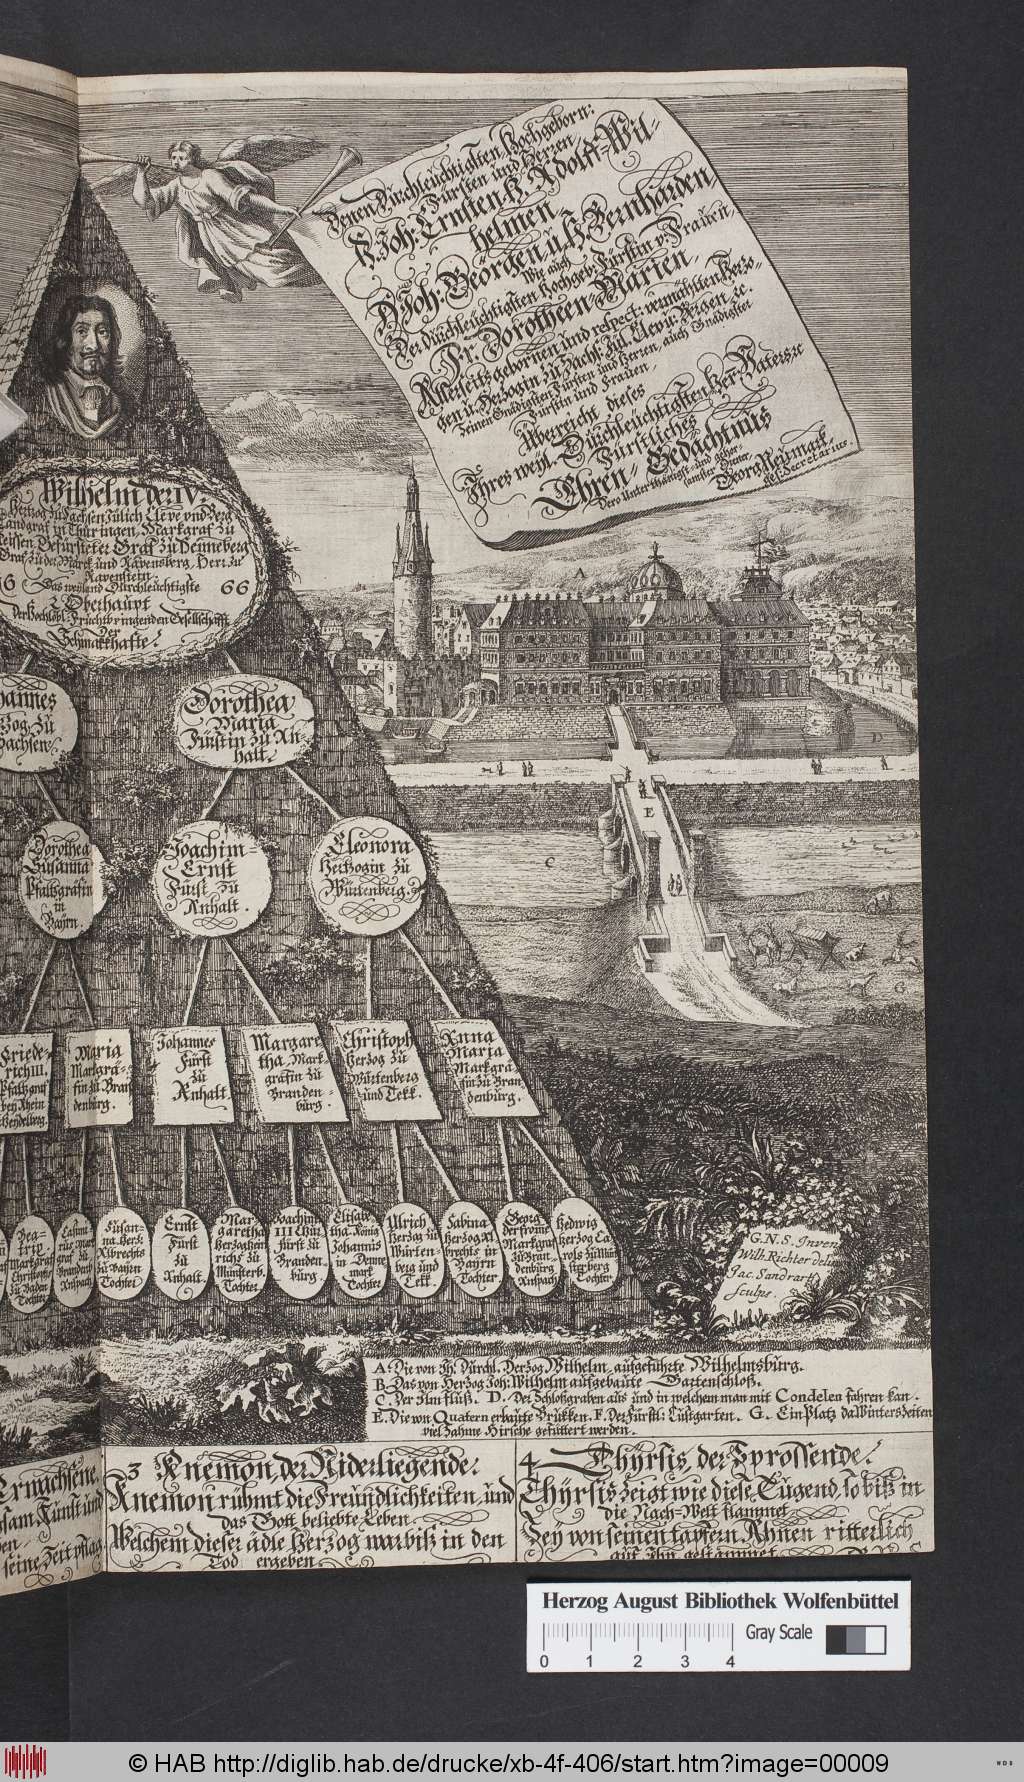 Denen Dürchleüchtigsten Hochgeborn:
Fürsten und Herren,
H. Joh: Ernsten, H. Adolff-Wil-
helmen,
H. Joh: Georgen, ü. H. Bernharden,
Wie auch
Der Dürchleüchtigsten Hochgeb: Fürstin v: Fraüen,
Fr: Dorotheen-Marien,
Allerseits gebornen und respect: vermählten Herzo-
gen ü. Herzogin zu Sachs: Jül: Cleve ü. Bergen &c.
Seinen Gnädigsten Fürsten und Herren, auch Gnädigster
Fürstin und Frauen,
Überreicht dieses
Ihres weyl: Dürchleüchtigsten Herr Vaters &c
Fürstliches
Ehren-Gedächtnüs
Dero Unterthänigst- und gehor-
samster Diener,
Georg Neumark
Secretarius
Wilhelm der IV.
Herzog zu Sachsen Jülich Cleve und Berg
Landgraf in Thüringen, Markgraf zu
Meissen, Gefürsteter Graf zu Henneberg
Graf zu der Marck und Ravensberg, Herr zu
Ravenstein,
16 Das weyland Dürchleüchtigste 66
Oberhaupt
Der Hochlöbl: Fruchtbringenden Gesellschafft
Der
Schmackhafte.
Dorothea
Maria
Fürstin zu An
halt.
Dorothea
Susanna
Pfaltzgräfin
in
Bayrn.
Joachim-
Ernst
Fürst zu
Anhalt.
Eleonora
Hertzogin zu
Würtenberg.
Friede-
rich III.
Pfaltzgraf
bey Rhein
Heydelberg.
Maria
Markgrä-
fin zu Bran
denbürg.
Johannes
Fürst
zu
Anhalt.
Margare
tha, Mark-
gräfin zu
Branden-
bürg.
Christoph
Herzog zu
Würtenberg
und Tekk.
Anna
Maria
Markgrä-
fin zu Bran
denbürg.
Bea-
trix
Markgraf
Christophs
zu Baden
Tochter
Casimi
rus, Mar
graf
zu
Brandenb
Anspach
Susan-
na, Herz:
Albrechts
zu Bayern
Tochter
Ernst
Fürst
zu
Anhalt.
Mar-
garetha
Herzog Hein
richs zu
Münsterb.
Tochter.
Joachim
III Chur
fürst zu
Branden
bürg
Elisabe
tha, König
Johannis
in Denne
mark
Tochter
Ulrich
Herzog zu
Würten-
berg und
Tekk
Sabina
Herzog Al
brechts in
Bayrn
Tochter
Georg
der fromme
Markgraf
zu Bran
denbürg
Anspach
Hedwig
Herzog Ca
rols zu Mün
sterberg
Tochter
A
D
E
C
G
G.N.S. Inven:
Wilh. Richter delin:
Jac. Sandrart
sculps.
A. Die von Ih: Dürchl. Herzog Wilhelm aufgeführte Wilhelmsbürg.
B. Das von Herzog Joh: Wilhelm aufgebaute Gartenschloß.
C. Der Ilm flüß. D. Der Schloßgraben aus und in welchem man mit Condelen fahren kan.
E. Die von Quatern erbaüte Brükken. F. Der Fürstl: Lüstgarten. G. Ein Platz da Winters Zeiten
viel Zahme Hirsche gefüttert werden.
3 Knemon, der Niderliegende.
Knemon rühmt die Freündlichkeiten, und
das Gott beliebte Leben.
Welchem dieser ädle Herzog war biß in den
Tod ergeben.
4 Thyrsis, der Sprossende.
Thyrsis zeigt wie diese Tugend, so biß in
die Nach-Welt flammet
Sey von seinen tapfern Ahnen ritterlich
auf Ihn gestammet.
Herzog August Bibliothek Wolfenbüttel
Gray Scale
0 1 2 3 4
© HAB http://diglib.hab.de/drucke/xb-4f-406/start.htm?image=00009